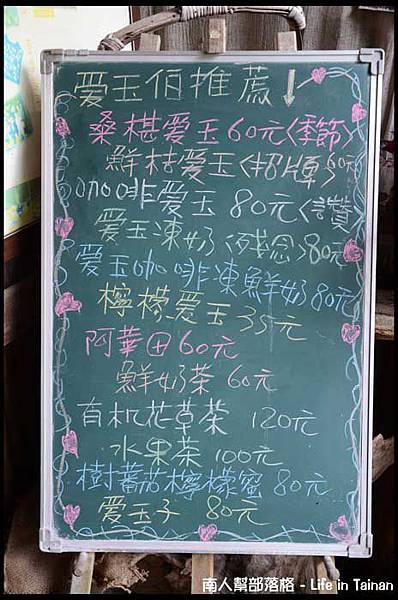 爱玉伯推薦↓
桑椹爱玉60元<季節>
鮮桔爱玉<招牌>60元
咖啡爱玉 80元<讚>
爱玉凍奶<残念>80元
爱玉咖啡凍鮮奶80元
檸檬爱玉35元
阿華田60元
鮮奶茶 60元
有机花草茶 120元
水果茶 100元
樹蕃茄檸檬蜜 80元
爱玉子 80元
南人幫部落格 - Life in Tainan